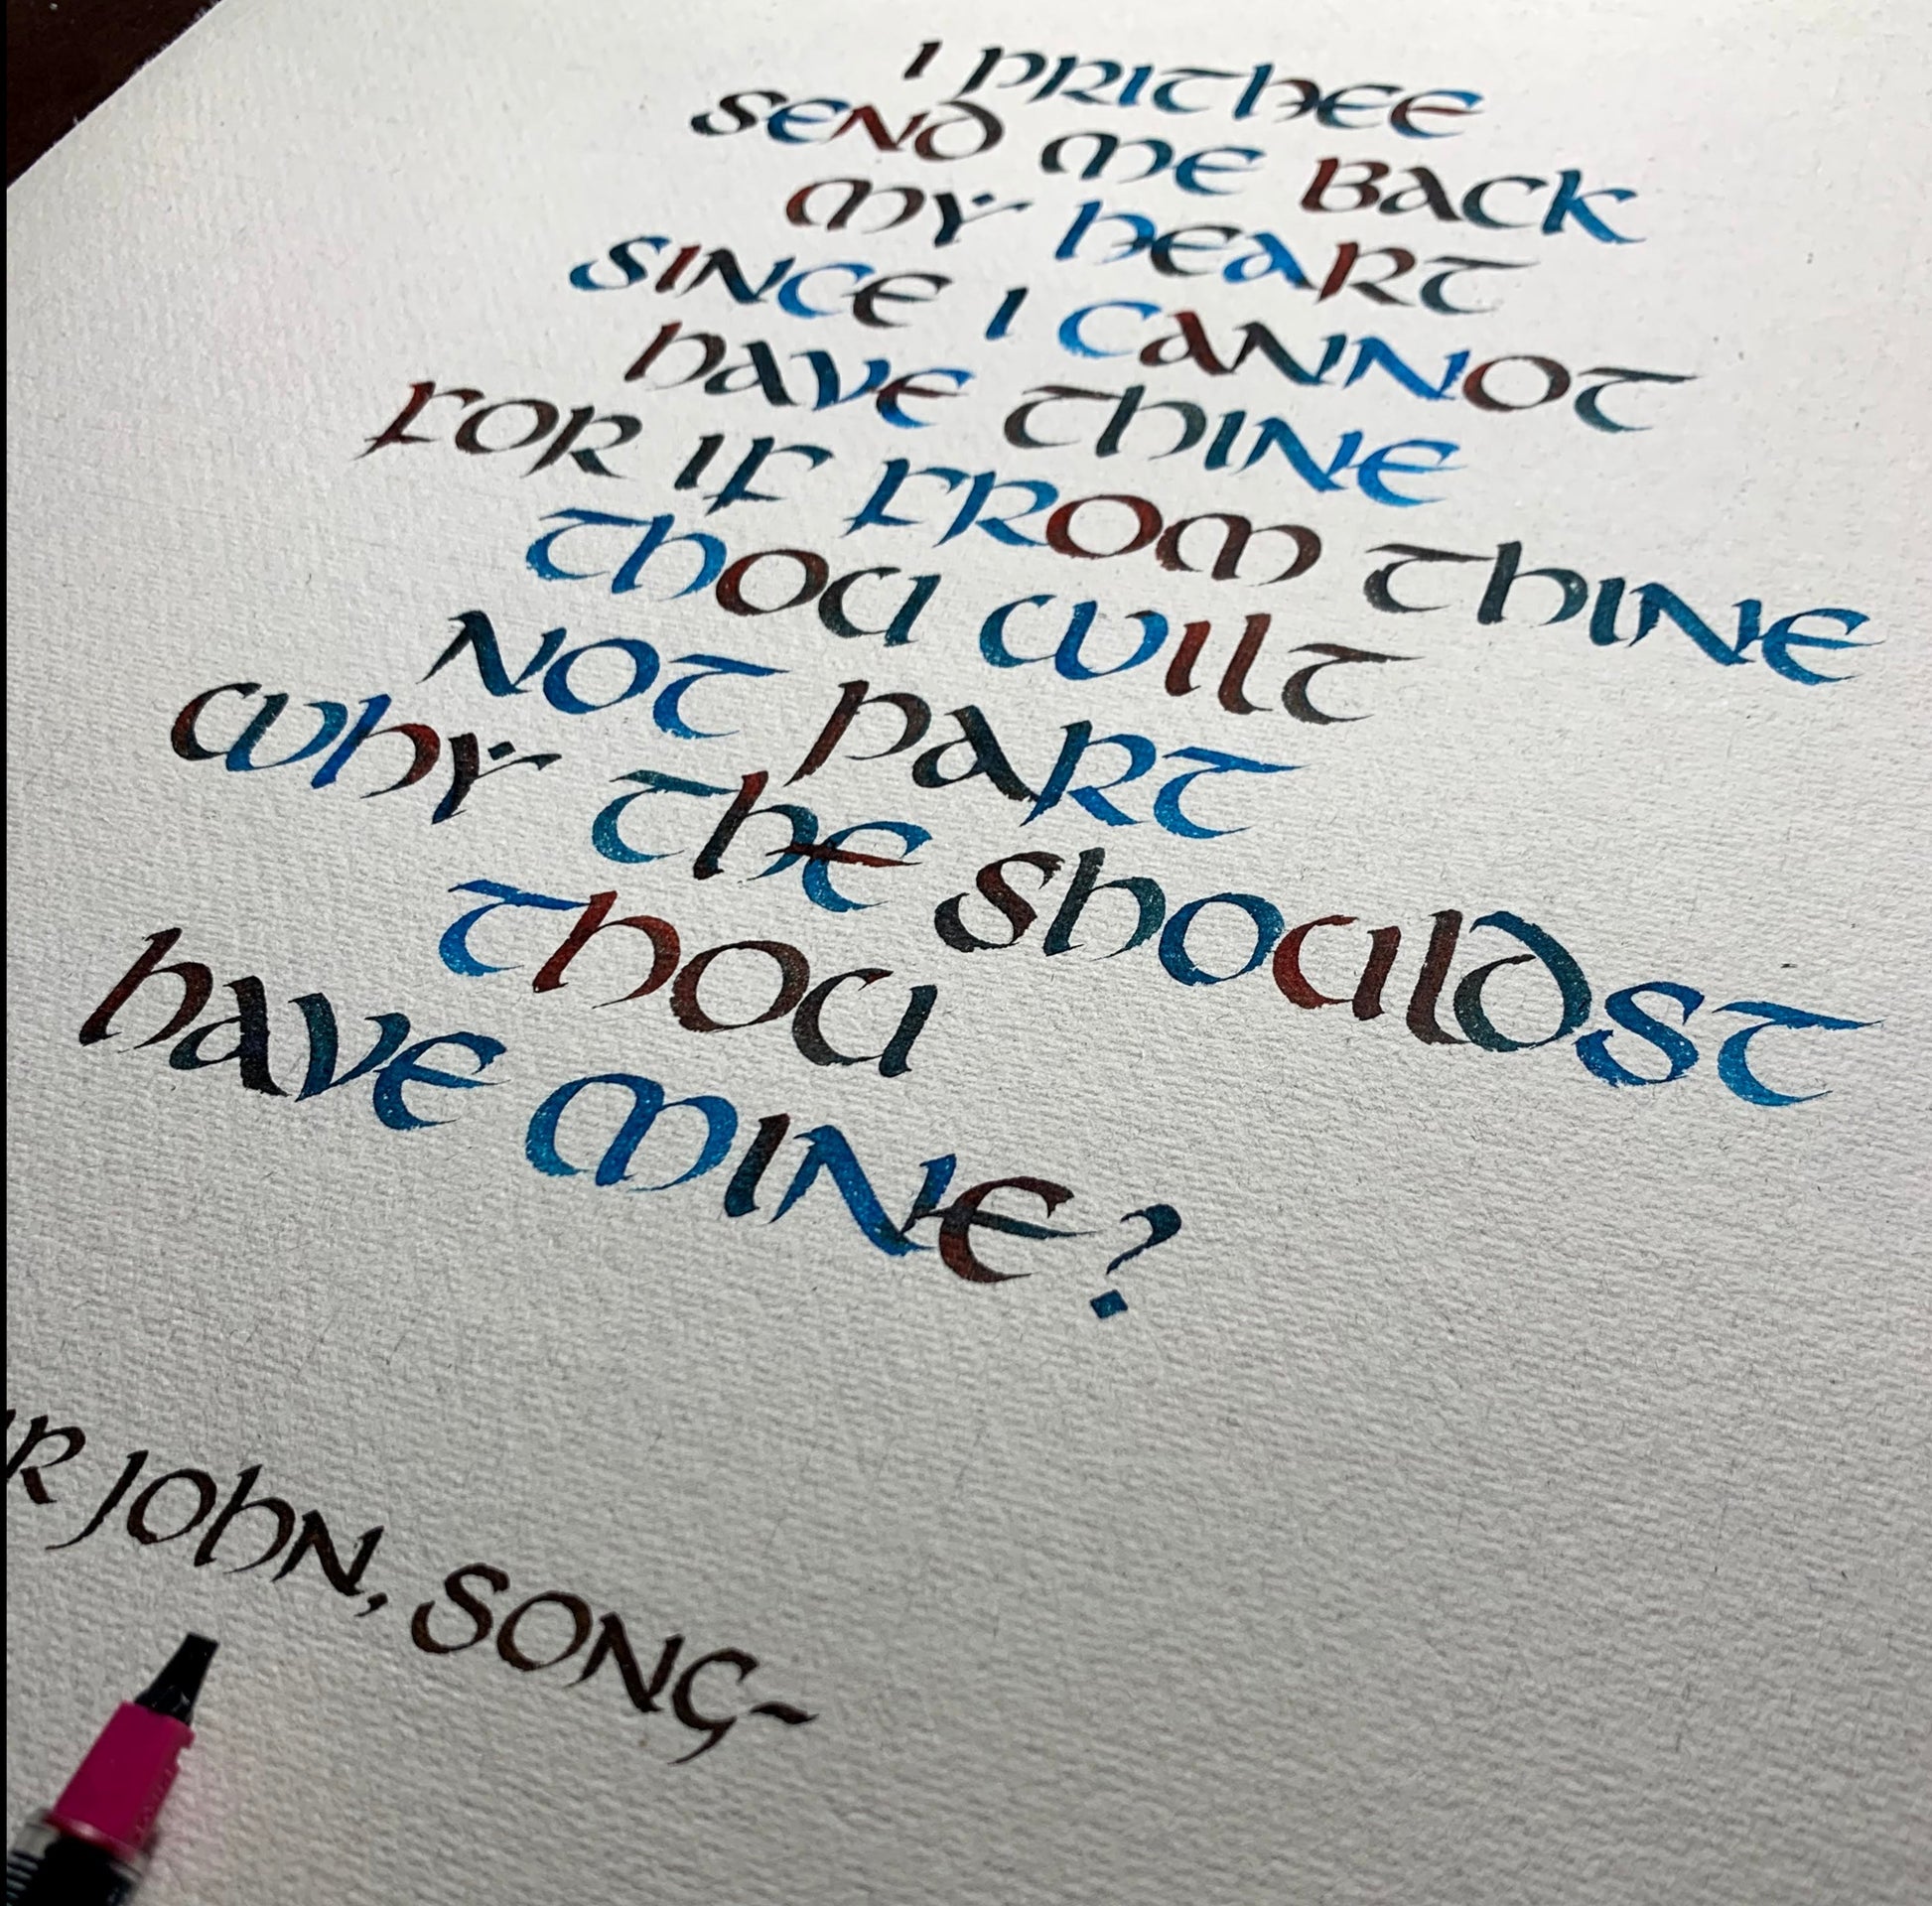 I PRITHEE
SEND ME BACK
MY HEART
SINCE I CANNOT
HAVE THINE
FOR IF FROM THINE
THOU WILT
NOT PART
WHY THE SHOULDST
THOU
HAVE MINE?
R JOHN, SONG~